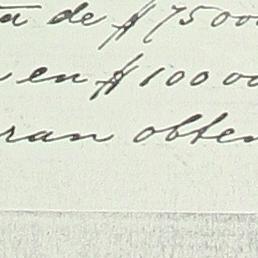 ta de $ 75000
en $ 100 00
ran obten